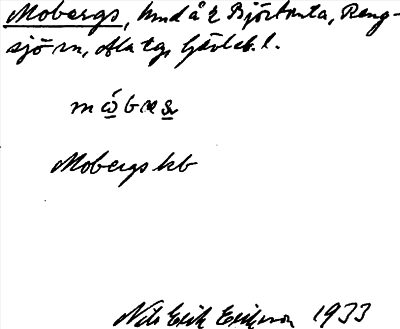 Mobergs, hmd å 2 Björktuta, Reng-
sjö sn, Ala tg, Gävleb. l.
Mobergs kb
Nils Erik Eriksson 1933